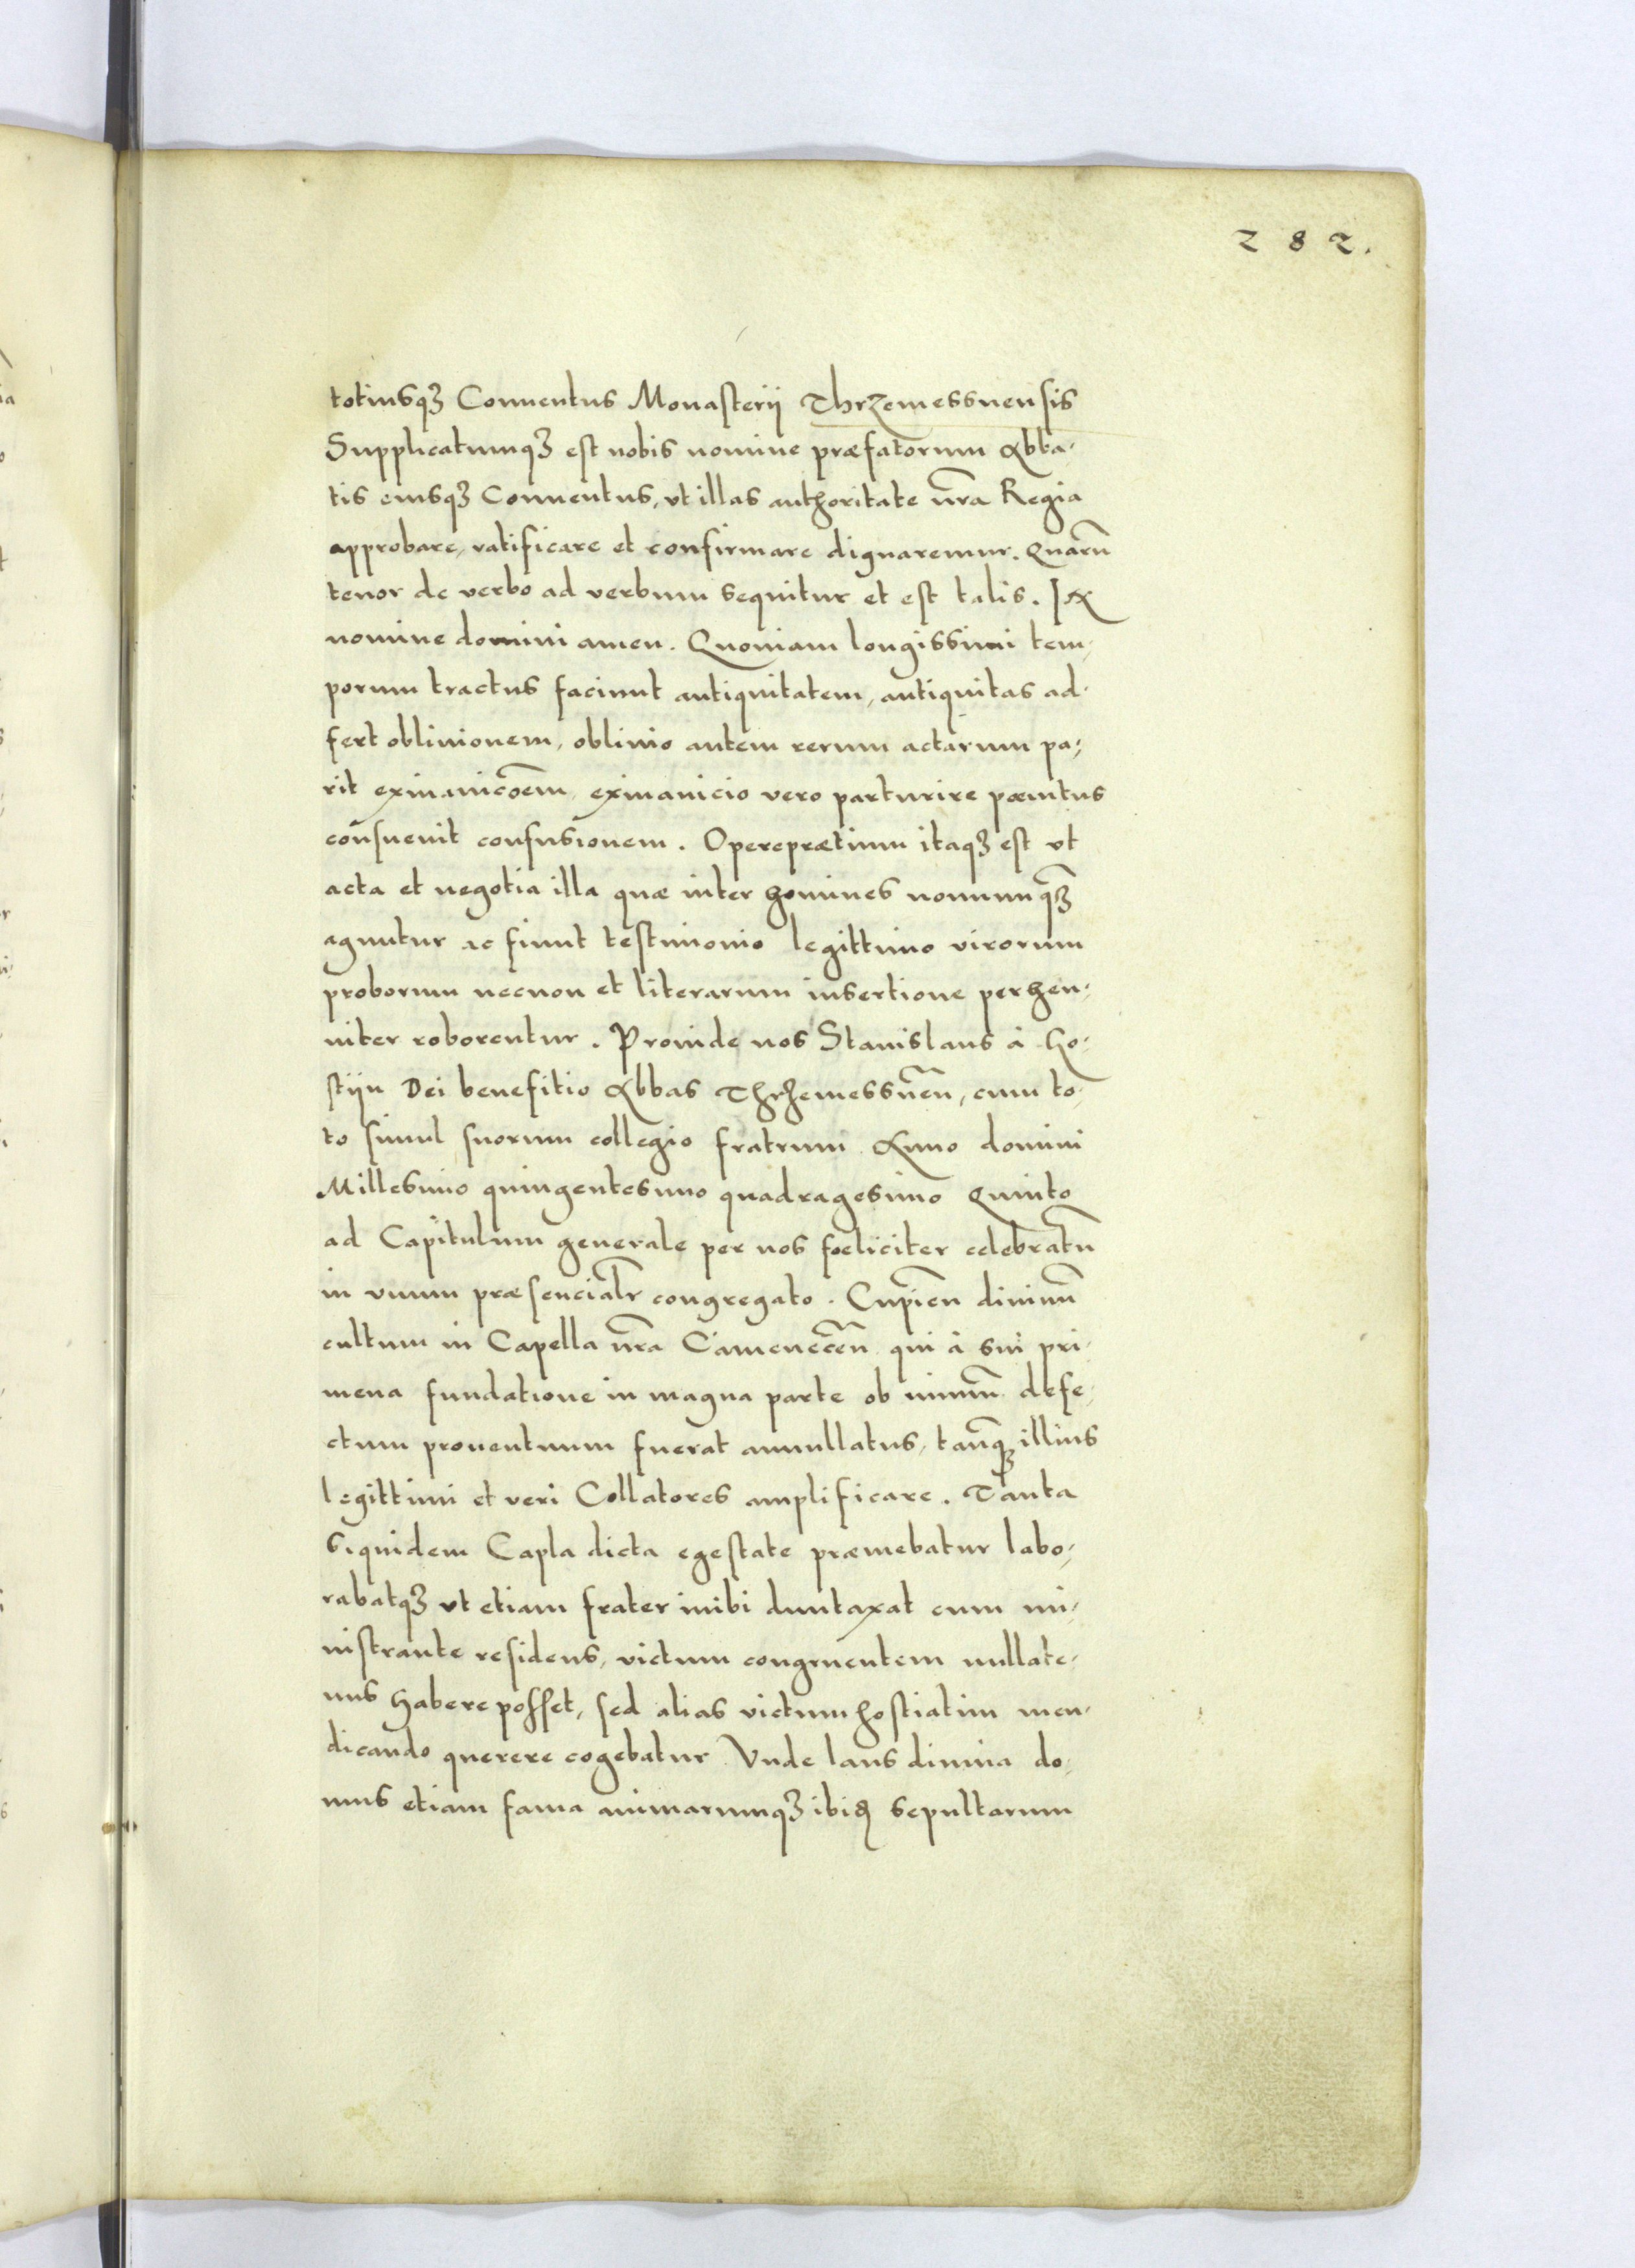 282.
totiusqꝫ Conuentus Monasterii Thrzemessnensis
Supplicatumqꝫ est nobis nomine præfatorum Abba-
tis eiusqꝫ Conuentus, vt illas authoritate nr̃a Regia
approbare, ratificare et confirmare dignaremur. Quarũ
tenor de verbo ad verbum sequitur et est talis. IN
nomine domini amen. Quoniam longissimi tem-
porum tractus faciunt antiquitatem, antiquitas ad-
fert obliuionem, obliuio autem rerum actarum pa-
rit exinanicõem, exinanicio vero parturire pœnitus
consueuit confusionem. Opereprætium itaqꝫ est vt
acta et negotia illa quæ inter homines nonnunqꝫ̃
aguntur ac fiunt testimonio legittimo virorum
proborum necnon et literarum insertione perhen-
niter roborentur. Proinde nos Stanislaus à Ho-
stÿn Dei benefitio Abbas Thrzemessnẽn, cum to-
to simul suorum collegio fratrum Anno domini
Millesimo quingentesimo quadragesimo Quinto
ad Capitulum generale per nos fœliciter celebratũ
in vnum præsencialr̃ congregato. Cupień diuinũ
cultum in Capella nr̃a Camenecẽn qui à sui pri-
mena fundatione in magna parte ob nimiũ defe-
ctum prouentuum fuerat annullatus, tanqꝫ̃ illius
legittimi et veri Collatores amplificare. Tanta
siquidem Capla dicta egestate præmebatur labo-
rabatqꝫ vt etiam frater inibi duntaxat cum mi-
nistrante residens, victum congruentem nullate-
nus habere posset, sed alias victum hostiatim men-
dicando querere cogebatur Vnde laus diuina do-
mus etiam fama animarumqꝫ ibiꝗ sepultarum